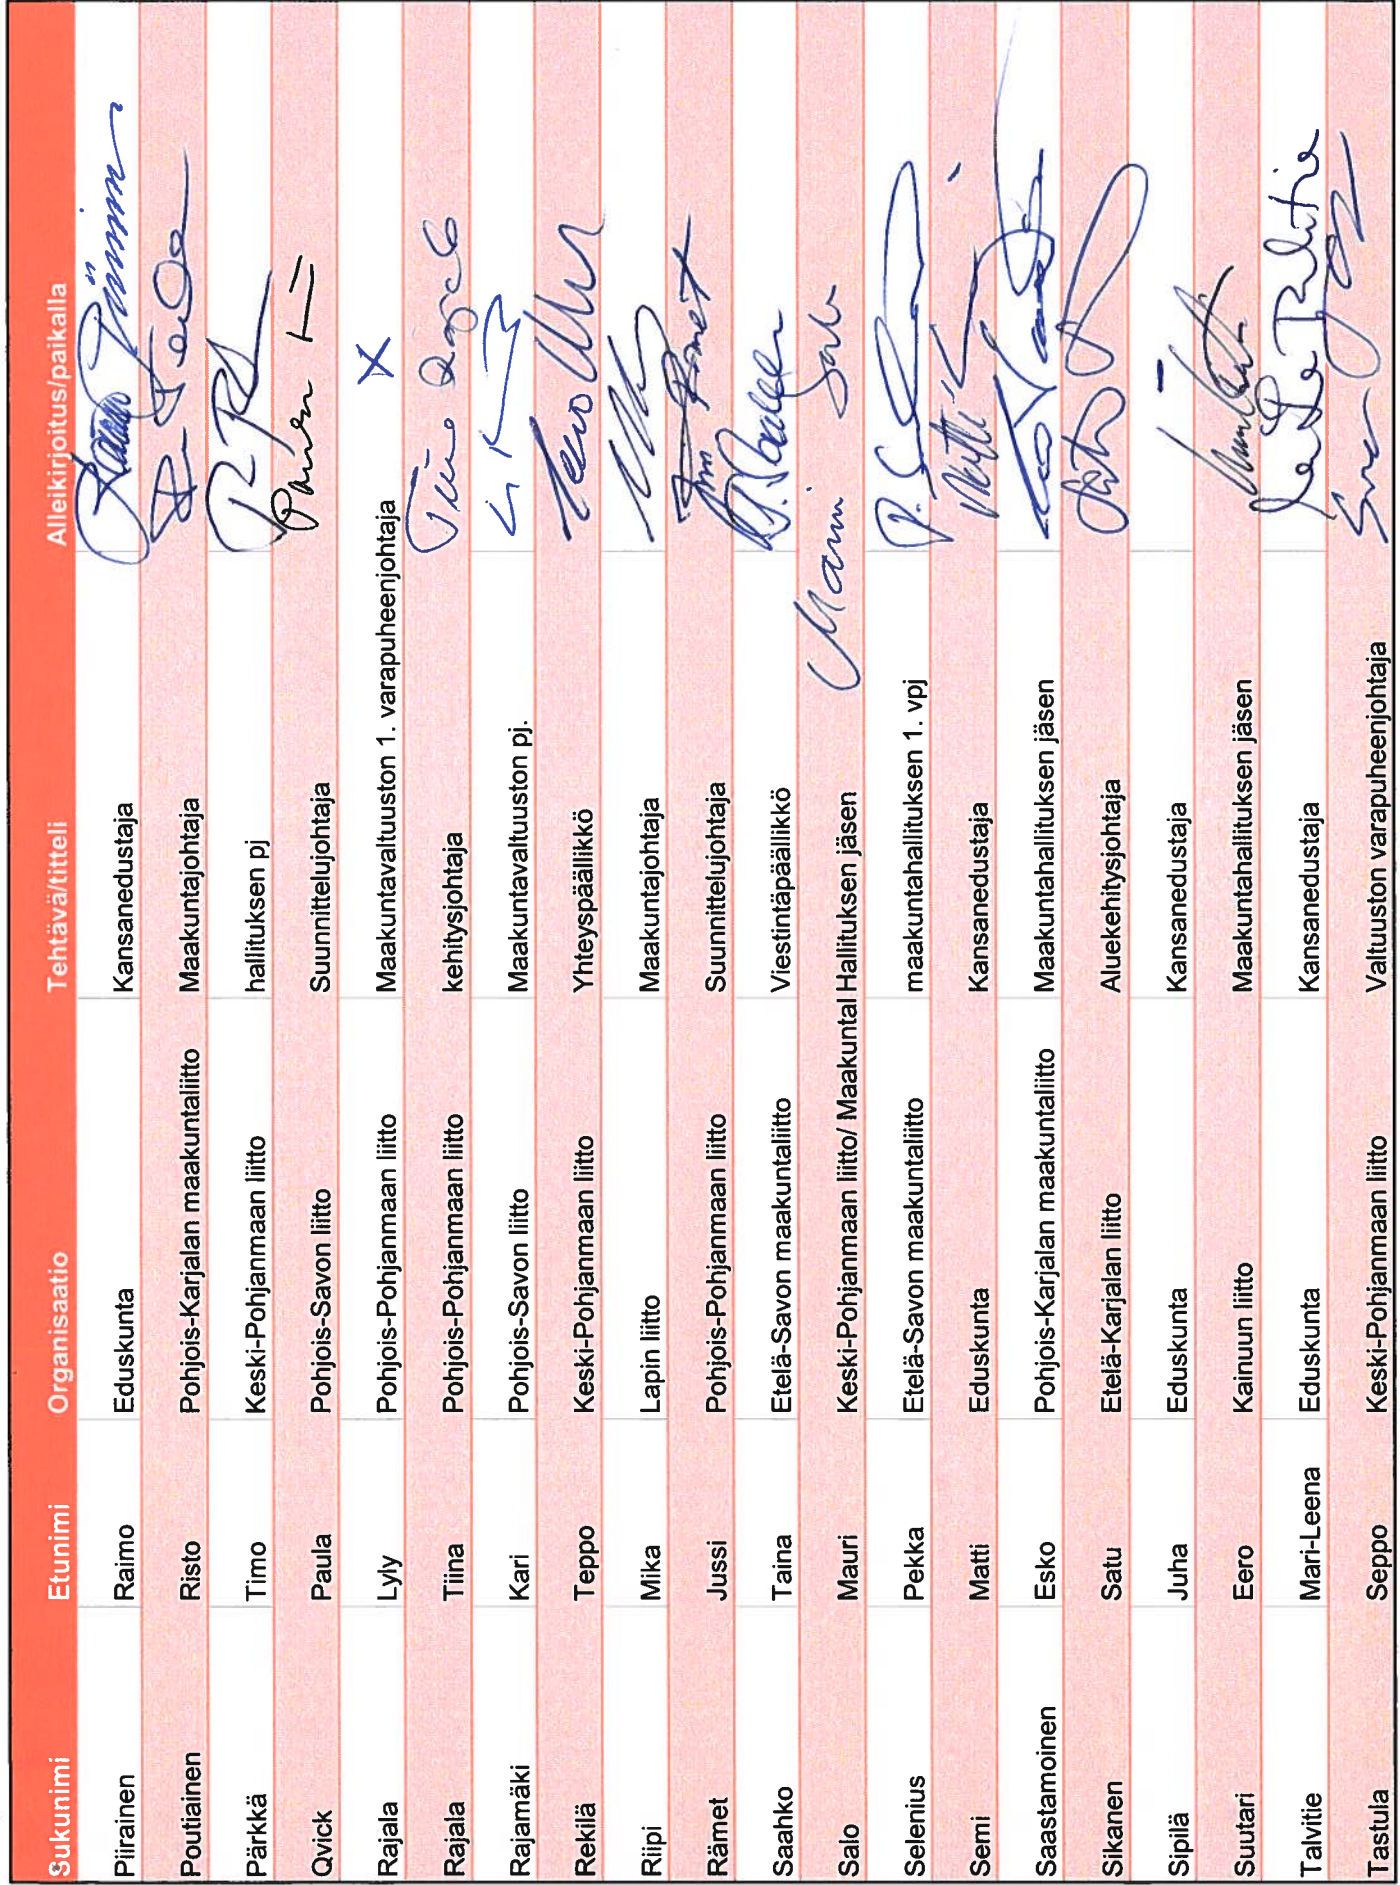 Sukunimi Etunimi Organisaatio Tehtävä/titteli Alleikirjoitus/paikalla
Piirainen Raimo Eduskunta Kansanedustaja
Poutiainen Risto Pohjois-Karjalan maakuntaliitto Maakuntajohtaja
Pärkkä Timo Keski-Pohjanmaan liitto hallituksen pj
Qvick Paula Pohjois-Savon liitto Suunnittelujohtaja
Rajala Lyly Pohjois-Pohjanmaan liitto Maakuntavaltuuston 1. varapuheenjohtaja X
Rajala Tiina Pohjois-Pohjanmaan liitto kehitysjohtaja
Rajamäki Kari Pohjois-Savon liitto Maakuntavaltuuston pj.
Rekilä Teppo Keski-Pohjanmaan liitto Yhteyspäällikkö
Riipi Mika Lapin liitto Maakuntajohtaja
Rämet Jussi Pohjois-Pohjanmaan liitto Suunnittelujohtaja
Saahko Taina Etelä-Savon maakuntaliitto Viestintäpäällikkö
Salo Mauri Keski-Pohjanmaan liitto/ Maakuntal Hallituksen jäsen Mauri Salo
Selenius Pekka Etelä-Savon maakuntaliitto maakuntahallituksen 1. vpj
Semi Matti Eduskunta Kansanedustaja
Saastamoinen Esko Pohjois-Karjalan maakuntaliitto Maakuntahallituksen jäsen
Sikanen Satu Etelä-Karjalan liitto Aluekehitysjohtaja
Sipilä Juha Eduskunta Kansanedustaja
Suutari Eero Kainuun liitto Maakuntahallituksen jäsen
Talvitie Mari-Leena Eduskunta Kansanedustaja
Tastula Seppo Keski-Pohjanmaan liitto Valtuuston varapuheenjohtaja